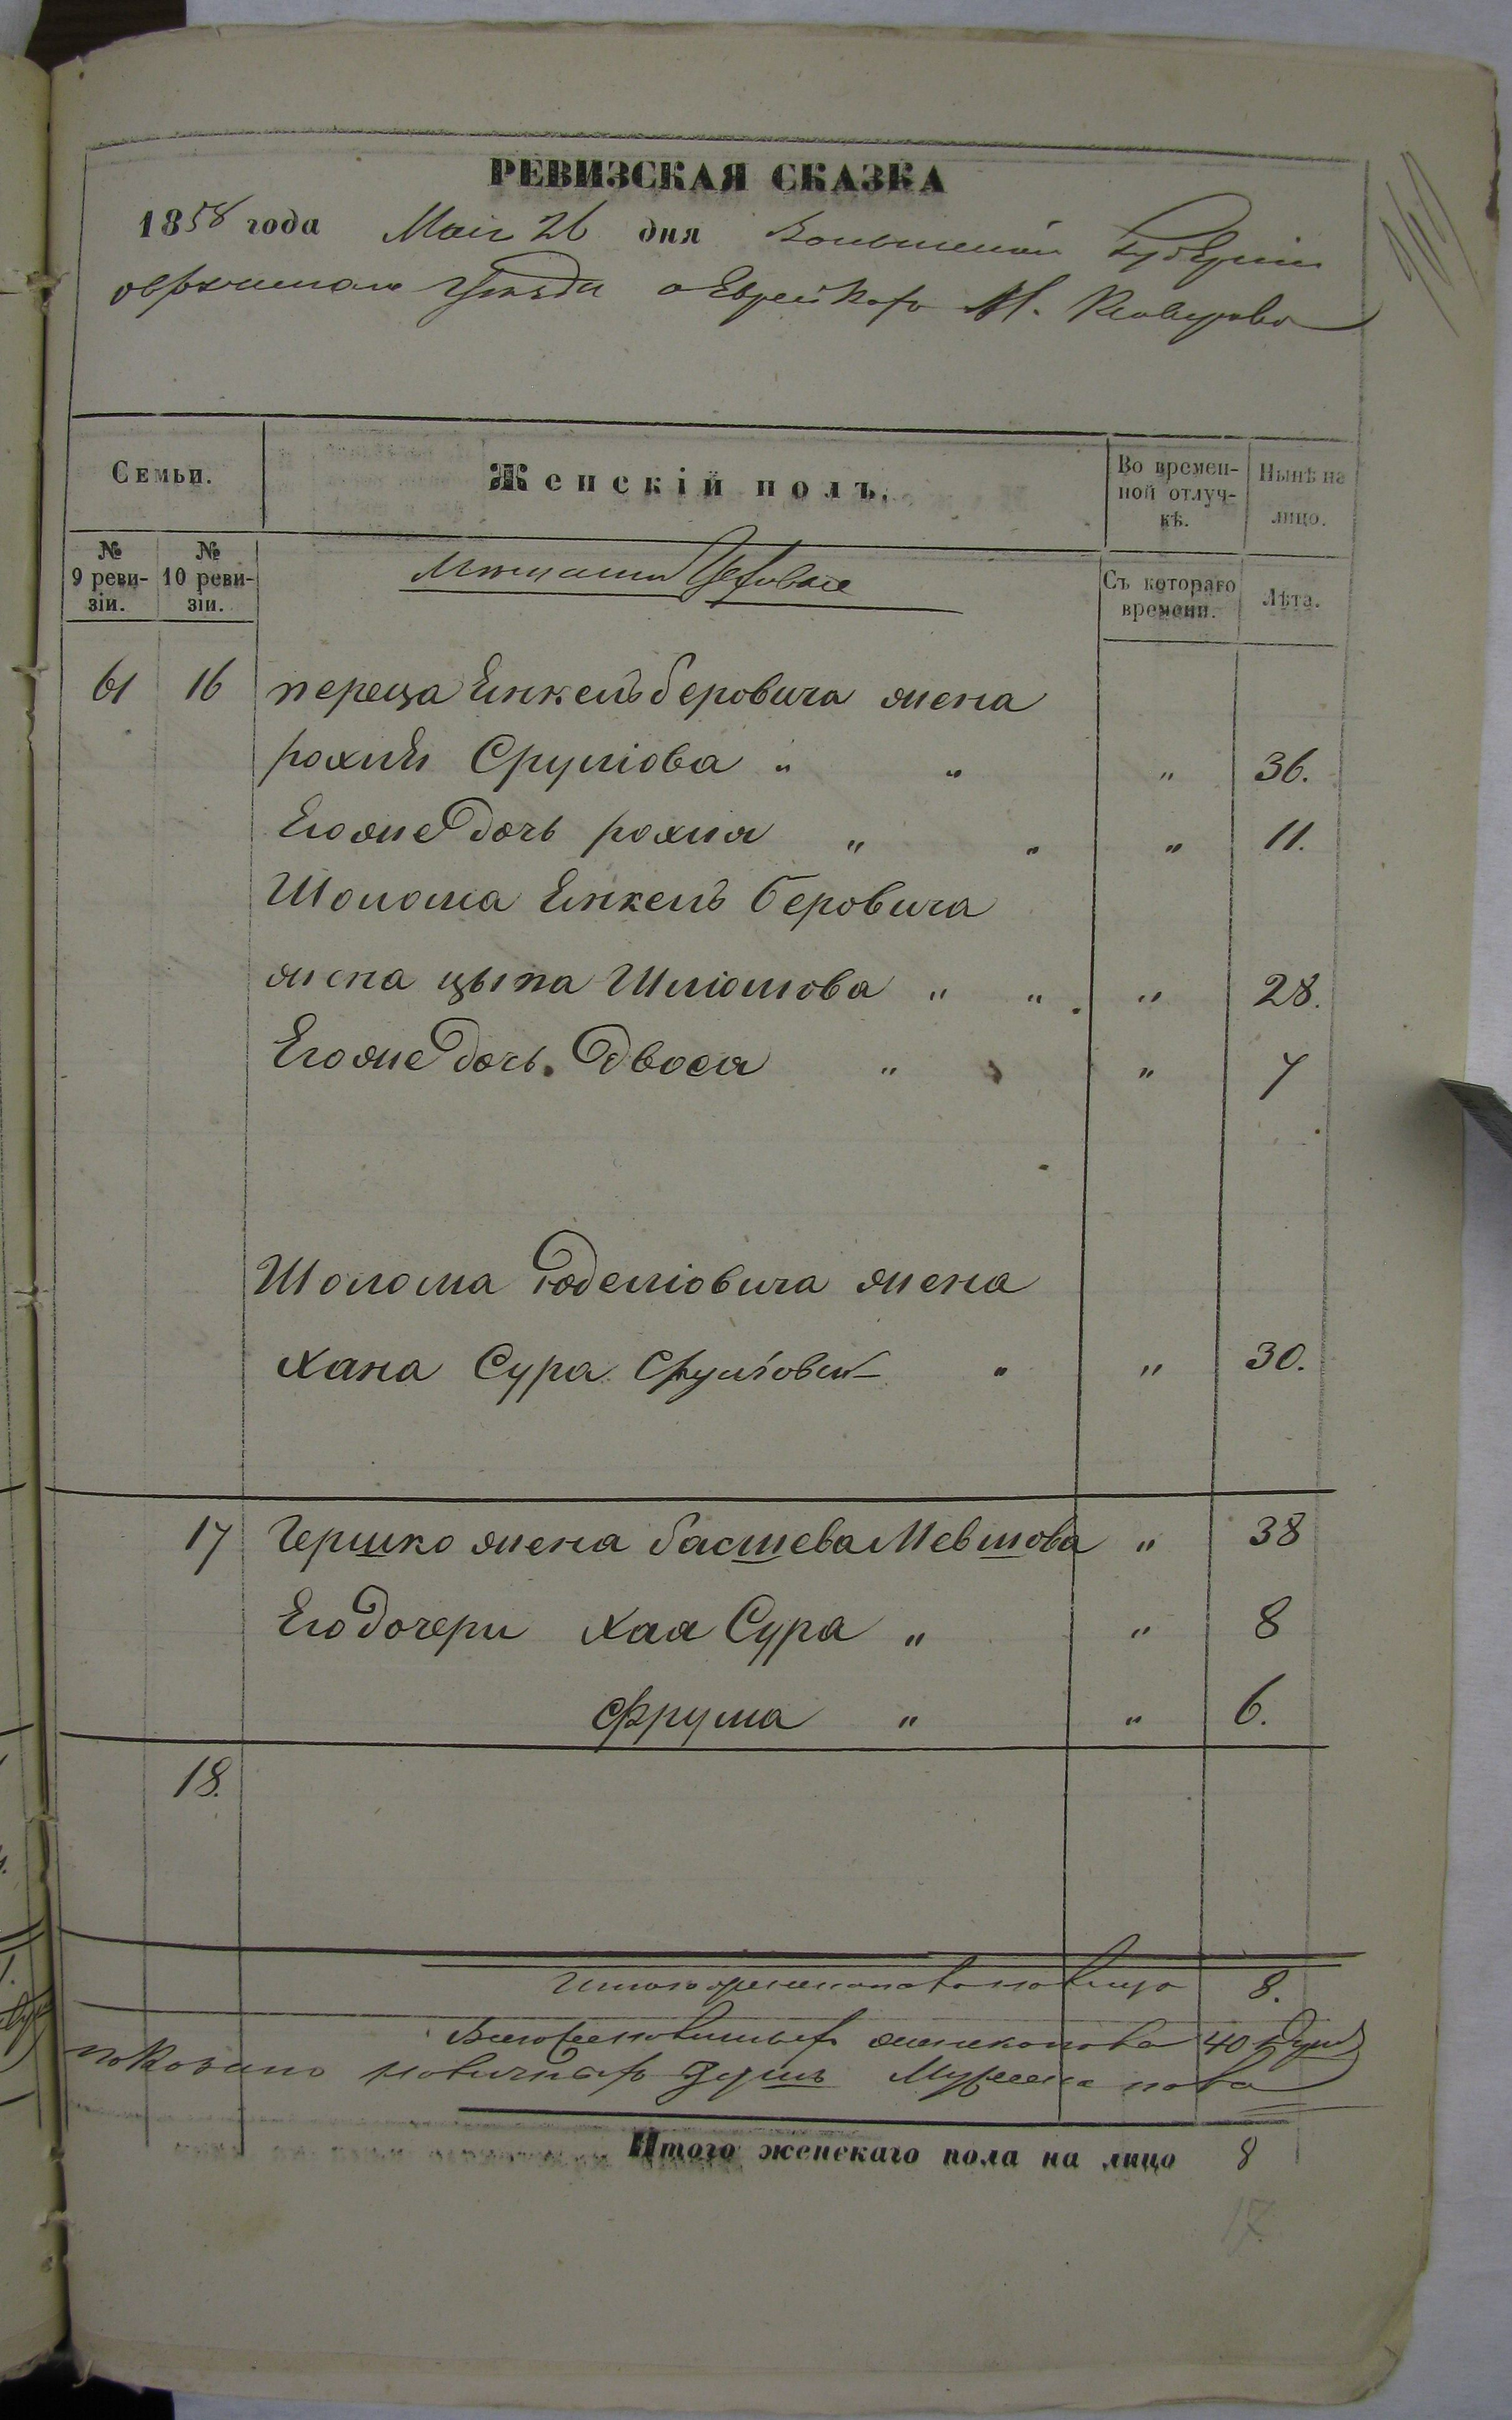 РЕВИЗСКАЯ СКАЗКА
1858 года Маія 26 дня Волынской Губерніи
Овручскаго Уѣзда о Евреяхъ М.
Семьи.
Женскій полъ.
Во времен-
ной отлуч-
кѣ.
Нынѣ на
лицо.
№
9 реви-
зіи.
№
10 реви-
зіи.
Мѣщане Цеховые
Съ котораго
времени.
Лѣта.
61 16 переца Енкель беровича жена
рохля Срулiова " " " 36.
Его же дочь рохля " " " 11.
Шолома Енкель беровича
жена цыпа Шліомова " " " 28.
Его же дочь Двося " " 7
Шолома Юделiовича жена
Хана Сура Срулiова " " 30.
17 Гершко жена басшева Мевшова " 38
Его дочери Хая Сура " " 8
Фрума " " 6.
18.
Итого женскаго пола на лицо 8.
женскаго пола 40 душъ
показано наличныхъ душъ Мужеска пола
Итого женскаго пола на лицо 8
17